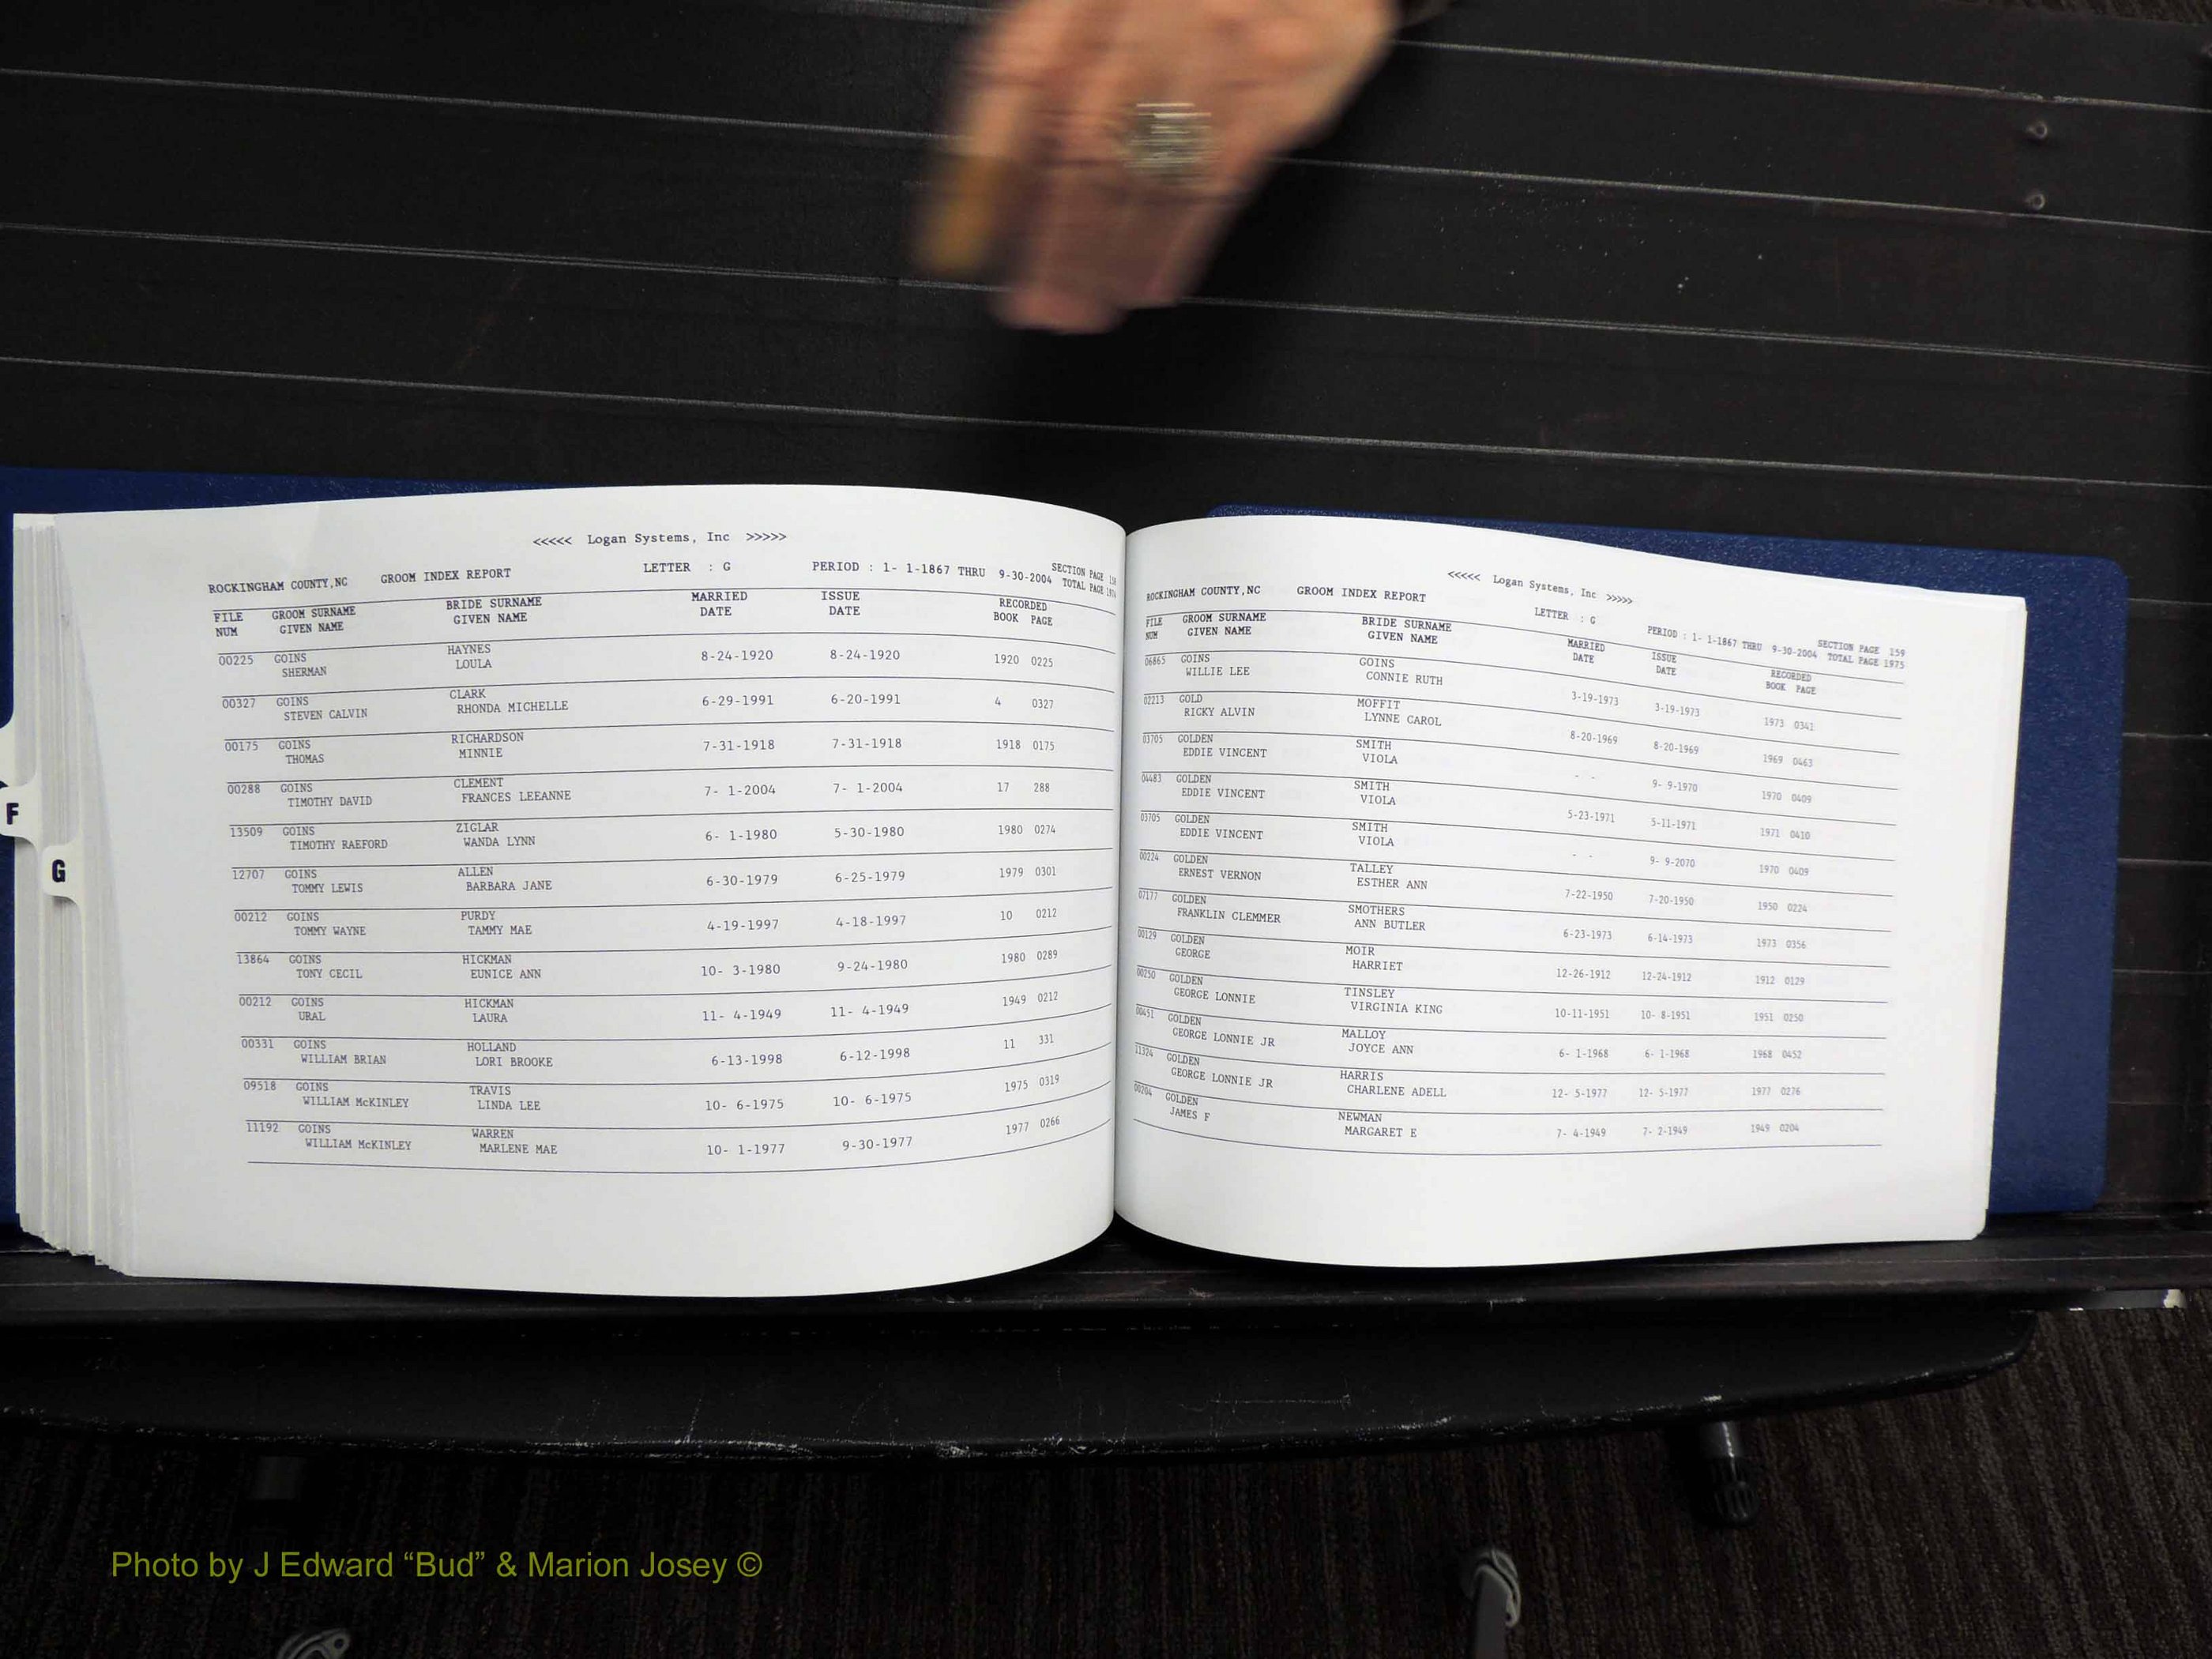 <<<<< Logan Systems, Inc >>>>>
ROCKINGHAM COUNTY,NC GROOM INDEX REPORT LETTER : G PERIOD : 1- 1-1867 THRU 9-30-2004 SECTION PAGE 158
TOTAL PAGE
FILE GROOM SURNAME BRIDE SURNAME MARRIED ISSUE RECORDED
NUM GIVEN NAME GIVEN NAME DATE DATE BOOK PAGE
00225 GOINS HAYNES 8-24-1920 8-24-1920 1920 0225
SHERMAN LOULA
00327 GOINS CLARK 6-29-1991 6-20-1991 4 0327
STEVEN CALVIN RHONDA MICHELLE
00175 GOINS RICHARDSON 7-31-1918 7-31-1918 1918 0175
THOMAS MINNIE
00288 GOINS CLEMENT 7- 1-2004 7- 1-2004 17 288
TIMOTHY DAVID FRANCES LEEANNE
13509 GOINS ZIGLAR 6- 1-1980 5-30-1980 1980 0274
TIMOTHY RAEFORD WANDA LYNN
12707 GOINS ALLEN 6-30-1979 6-25-1979 1979 0301
TOMMY LEWIS BARBARA JANE
00212 GOINS PURDY 4-19-1997 4-18-1997 10 0212
TOMMY WAYNE TAMMY MAE
13864 GOINS HICKMAN 10- 3-1980 9-24-1980 1980 0289
TONY CECIL EUNICE ANN
00212 GOINS HICKMAN 11- 4-1949 11- 4-1949 1949 0212
URAL LAURA
00331 GOINS HOLLAND 6-13-1998 6-12-1998 11 331
WILLIAM BRIAN LORI BROOKE
09518 GOINS TRAVIS 10- 6-1975 10- 6-1975 1975 0319
WILLIAM McKINLEY LINDA LEE
11192 GOINS WARREN 10- 1-1977 9-30-1977 1977 0266
WILLIAM McKINLEY MARLENE MAE
F
G
<<<<< Logan Systems, Inc >>>>>
ROCKINGHAM COUNTY,NC GROOM INDEX REPORT LETTER : G PERIOD : 1- 1-1867 THRU 9-30-2004 SECTION PAGE 159
TOTAL PAGE 1975
FILE GROOM SURNAME BRIDE SURNAME MARRIED ISSUE RECORDED
NUM GIVEN NAME GIVEN NAME DATE DATE BOOK PAGE
06865 GOINS GOINS 3-19-1973 3-19-1973 1973 0341
WILLIE LEE CONNIE RUTH
02213 GOLD MOFFIT 8-20-1969 8-20-1969 1969 0463
RICKY ALVIN LYNNE CAROL
03705 GOLDEN SMITH - - 9- 9-1970 1970 0409
EDDIE VINCENT VIOLA
04483 GOLDEN SMITH 5-23-1971 5-11-1971 1971 0410
EDDIE VINCENT VIOLA
03705 GOLDEN SMITH - - 9- 9-2070 1970 0409
EDDIE VINCENT VIOLA
00224 GOLDEN TALLEY 7-22-1950 7-20-1950 1950 0224
ERNEST VERNON ESTHER ANN
07177 GOLDEN SMOTHERS 6-23-1973 6-14-1973 1973 0356
FRANKLIN CLEMMER ANN BUTLER
00129 GOLDEN MOIR 12-26-1912 12-24-1912 1912 0129
GEORGE HARRIET
00250 GOLDEN TINSLEY 10-11-1951 10- 8-1951 1951 0250
GEORGE LONNIE VIRGINIA KING
00451 GOLDEN MALLOY 6- 1-1968 6- 1-1968 1968 0452
GEORGE LONNIE JR JOYCE ANN
11324 GOLDEN HARRIS 12- 5-1977 12- 5-1977 1977 0276
GEORGE LONNIE JR CHARLENE ADELL
00204 GOLDEN NEWMAN 7- 4-1949 7- 2-1949 1949 0204
JAMES F MARGARET E
Photo by J Edward “Bud” & Marion Josey ©